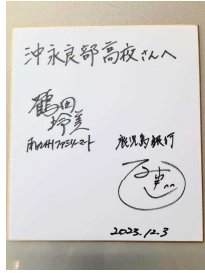 沖永良部高校さんへ
鶴田
玲美
南九州ファミリーマート
鹿児島銀行
2023.12.3